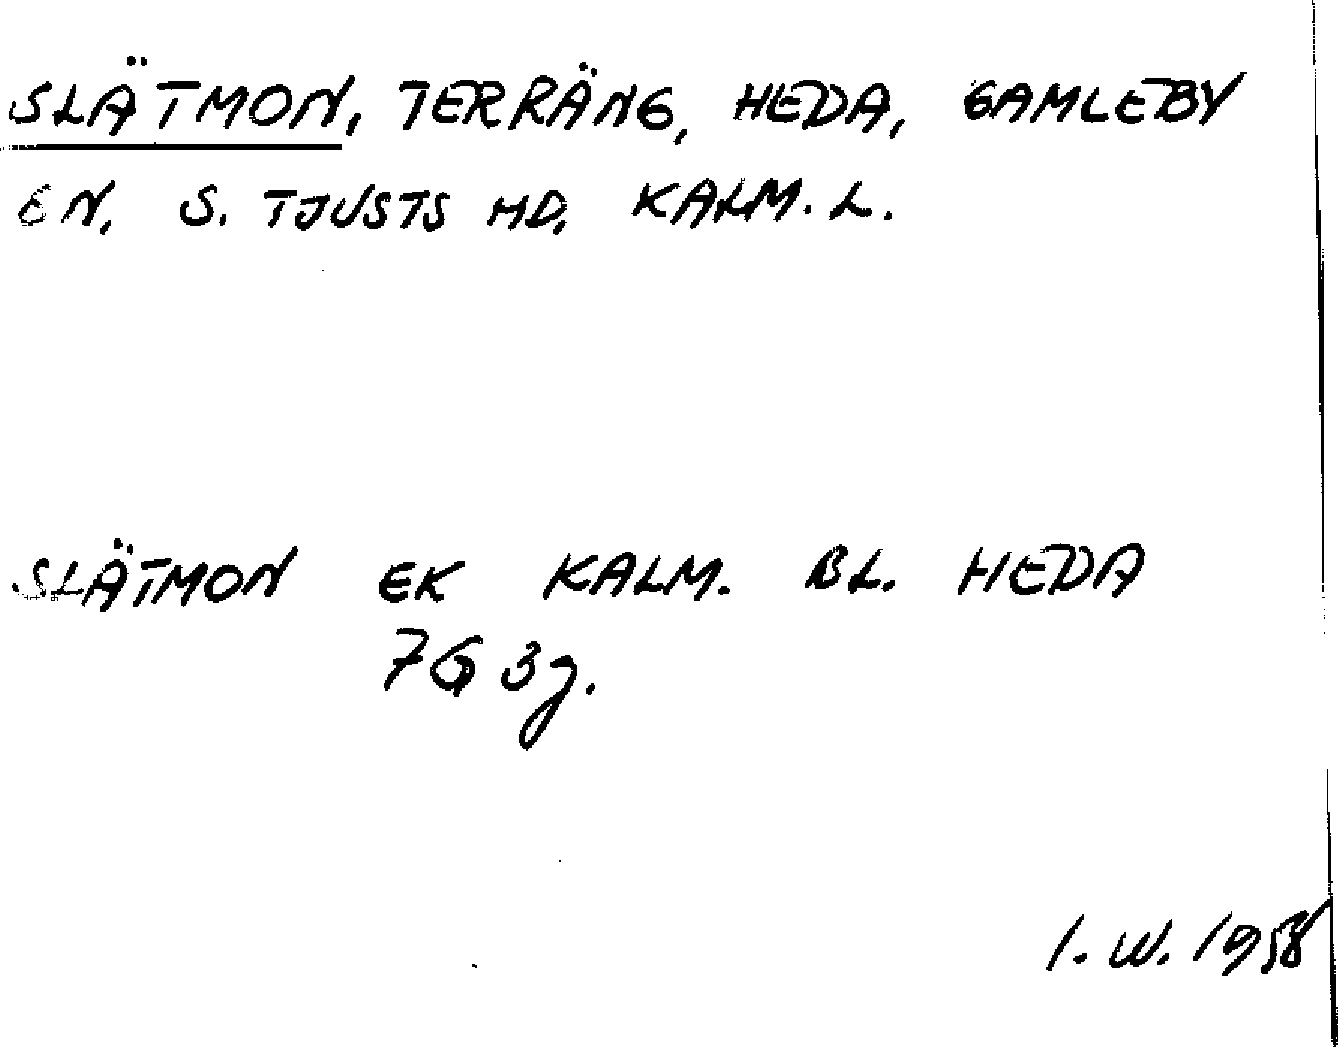 SLÄTMON, TERRÄNG, HEDA, GAMLEBY
EN, S. TJUSTS HD, KALM. L.
SLÄTMON EK KALM. BL. HEDA
7G 3g.
I. W. 1958